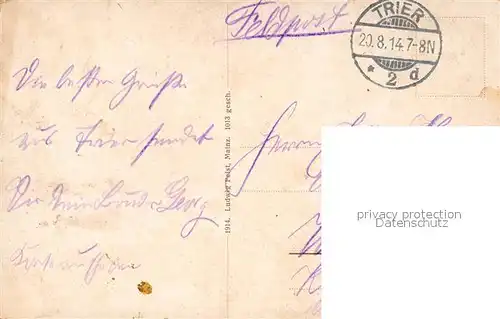 Feldpost
TRIER
20.8.14.7-8N
* 2 d
Die besten Grüße
aus Trier sendet
Dir Dein Bruder Georg
Herrn
1914. Ludwig Feist, Mainz. 1013 gesch.
privacy protection
Datenschutz